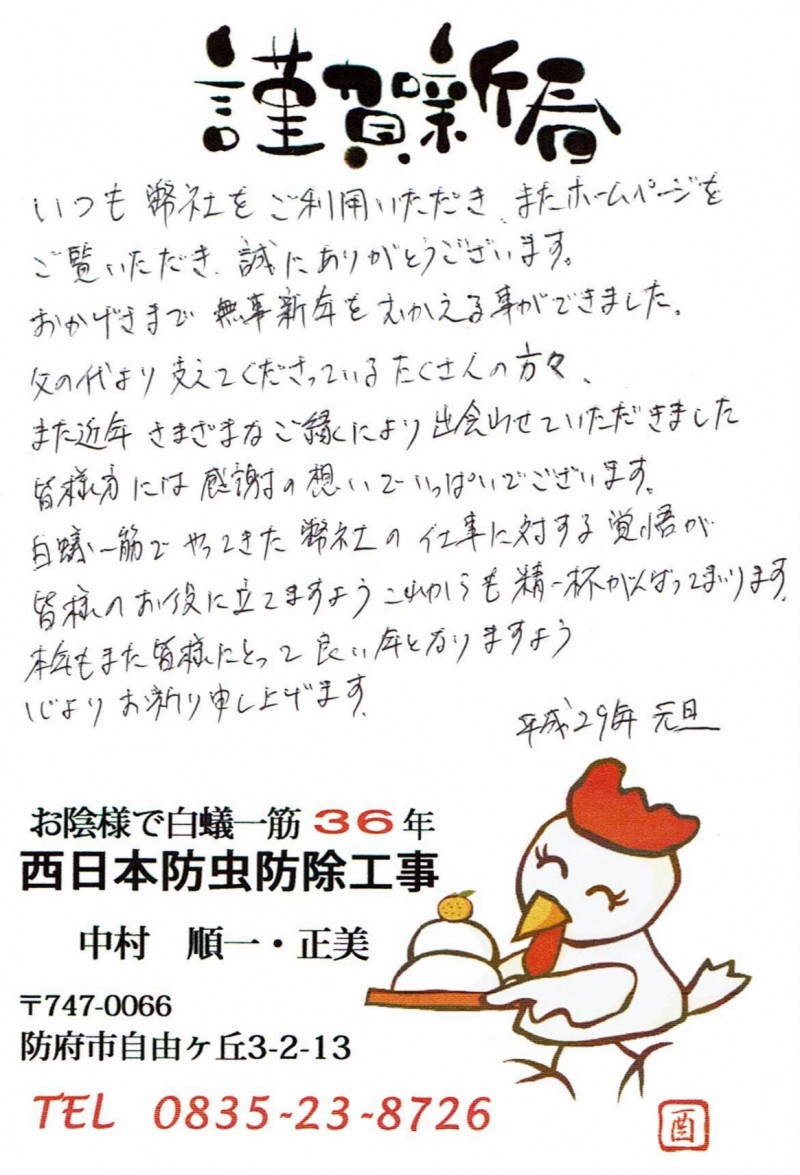 謹賀新春
いつも 弊社を ご利用いただき、またホームページを
ご覧いただき、誠にありがとうございます。
おかげさまで 無事新年を むかえる事ができました。
父の代より 支えてくださっているたくさんの方々、
また近年 さまざまな ご縁により 出会わせていただきました
皆様方には 感謝の想いでいっぱいでございます。
白蟻一筋で やってきた 弊社の 仕事に対する 覚悟が
皆様のお役に立てますよう これからも 精一杯がんばってまいります。
本年もまた皆様にとって 良い年となりますよう
心より お祈り申し上げます。
平成29年 元旦
お陰様で白蟻一筋36年
西日本防虫防除工事
中村 順一・正美
〒747-0066
防府市自由ヶ丘3-2-13
TEL 0835-23-8726
酉